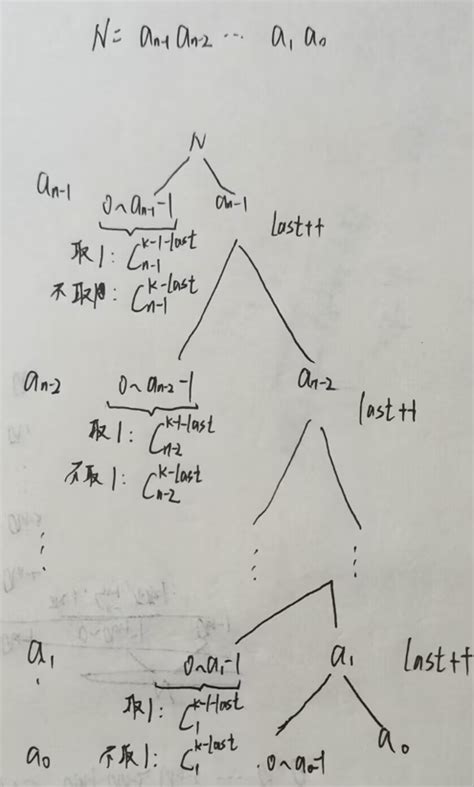 N = aₙ₋₁ aₙ₋₂ ⋯ a₁ a₀
N
aₙ₋₁ 0~aₙ₋₁-1 aₙ₋₁ last++
取1: Cₙ₋₁^{k-1-last}
不取1: Cₙ₋₁^{k-last}
aₙ₋₂ 0~aₙ₋₂-1 aₙ₋₂ last++
取1: Cₙ₋₂^{k-1-last}
不取1: Cₙ₋₂^{k-last}
⋮ ⋮ ⋮
a₁ 0~a₁-1 a₁ last++
取1: C₁^{k-1-last}
a₀ 不取1: C₁^{k-last} 0~a₀-1 a₀